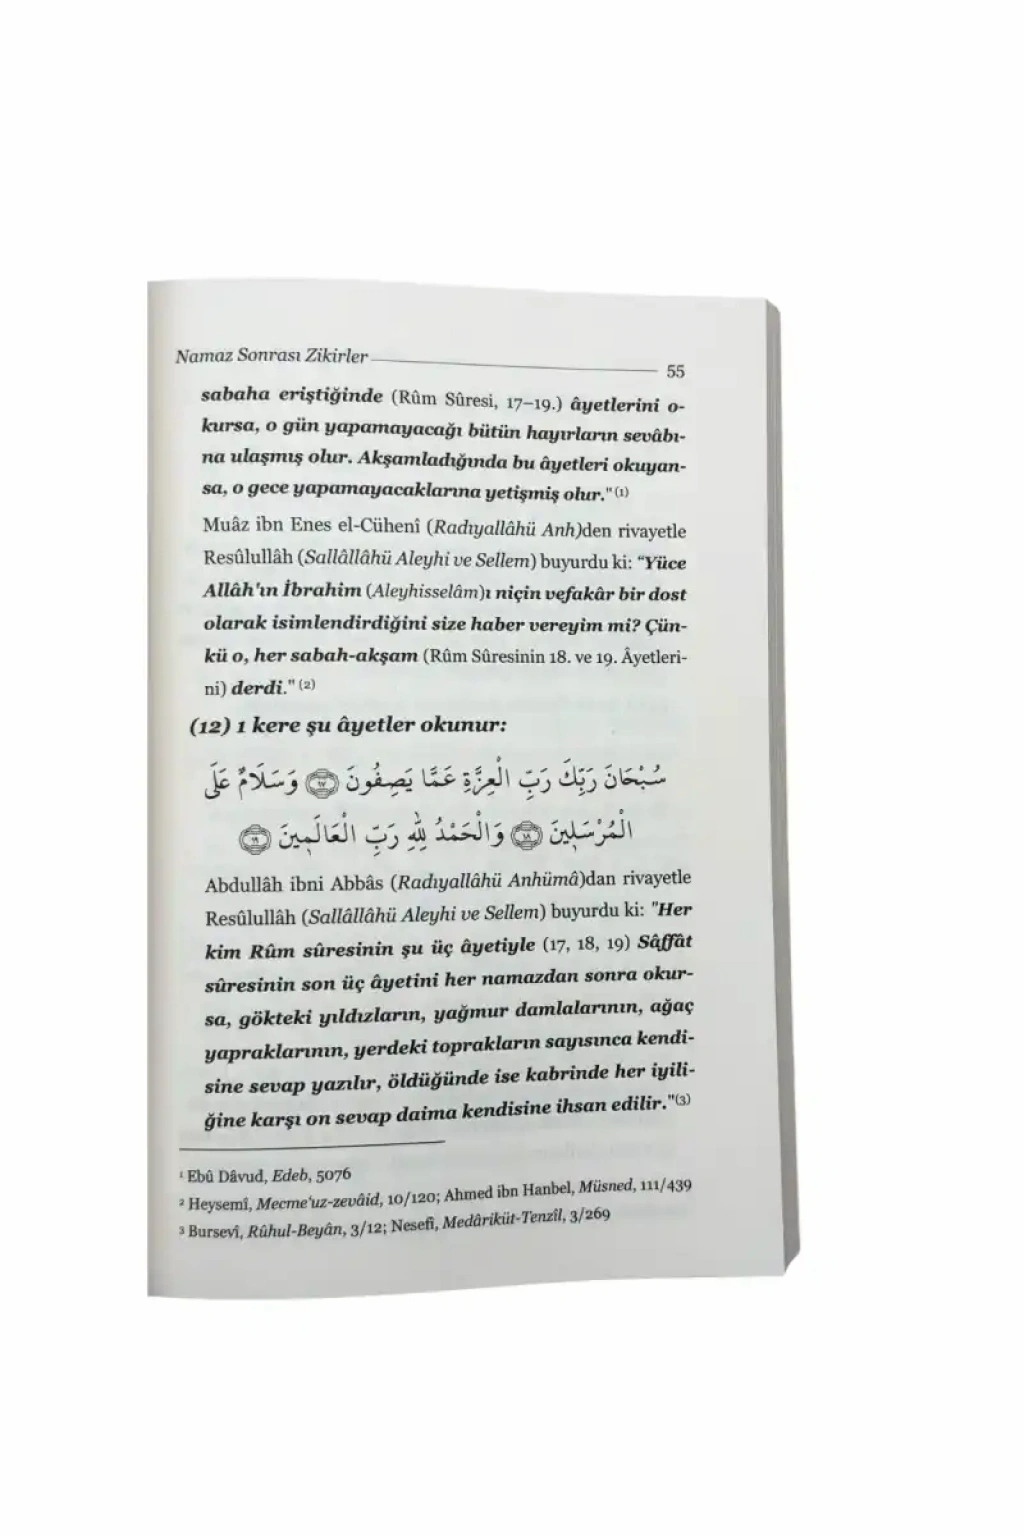 Namaz Sonrası Zikirler 55
sabaha eriştiğinde (Rûm Sûresi, 17–19.) âyetlerini o-
kursa, o gün yapamayacağı bütün hayırların sevâbı-
na ulaşmış olur. Akşamladığında bu âyetleri okuyan-
sa, o gece yapamayacaklarına yetişmiş olur." (1)
Muâz ibn Enes el-Cühenî (Radıyallâhü Anh)den rivayetle
Resûlullâh (Sallâllâhü Aleyhi ve Sellem) buyurdu ki: "Yüce
Allâh'ın İbrahim (Aleyhisselâm)ı niçin vefakâr bir dost
olarak isimlendirdiğini size haber vereyim mi? Çün-
kü o, her sabah-akşam (Rûm Sûresinin 18. ve 19. Âyetleri-
ni) derdi." (2)
(12) 1 kere şu âyetler okunur:
سُبْحَانَ رَبِّكَ رَبِّ الْعِزَّةِ عَمَّا يَصِفُونَ ﴿١٧﴾ وَسَلَامٌ عَلَى
الْمُرْسَلِينَ ﴿١٨﴾ وَالْحَمْدُ لِلّٰهِ رَبِّ الْعَالَمِينَ ﴿١٩﴾
Abdullâh ibni Abbâs (Radıyallâhü Anhümâ)dan rivayetle
Resûlullâh (Sallâllâhü Aleyhi ve Sellem) buyurdu ki: "Her
kim Rûm sûresinin şu üç âyetiyle (17, 18, 19) Sâffât
sûresinin son üç âyetini her namazdan sonra okur-
sa, gökteki yıldızların, yağmur damlalarının, ağaç
yapraklarının, yerdeki toprakların sayısınca kendi-
sine sevap yazılır, öldüğünde ise kabrinde her iyili-
ğine karşı on sevap daima kendisine ihsan edilir."(3)
¹ Ebû Dâvud, Edeb, 5076
² Heysemî, Mecme'uz-zevâid, 10/120; Ahmed ibn Hanbel, Müsned, 111/439
³ Bursevî, Rûhul-Beyân, 3/12; Nesefî, Medâriküt-Tenzîl, 3/269